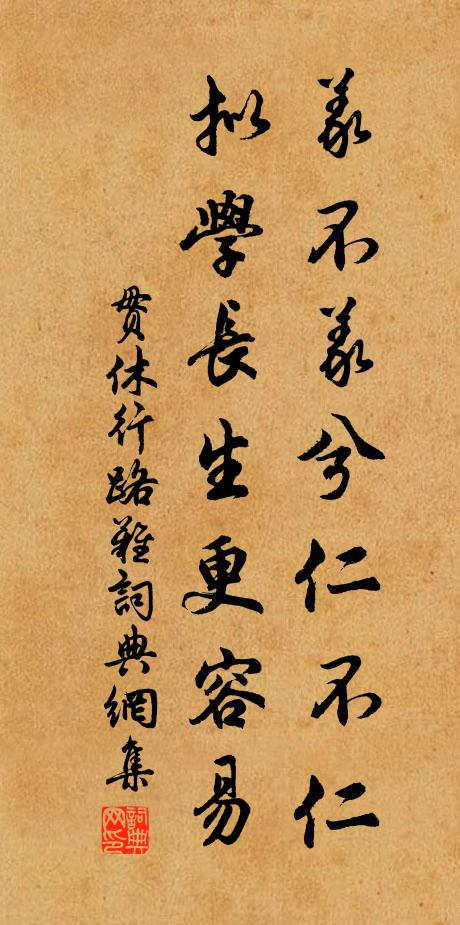 義不義兮仁不仁
擬學長生更容易
貫休行路難詞典網集
詞典网印